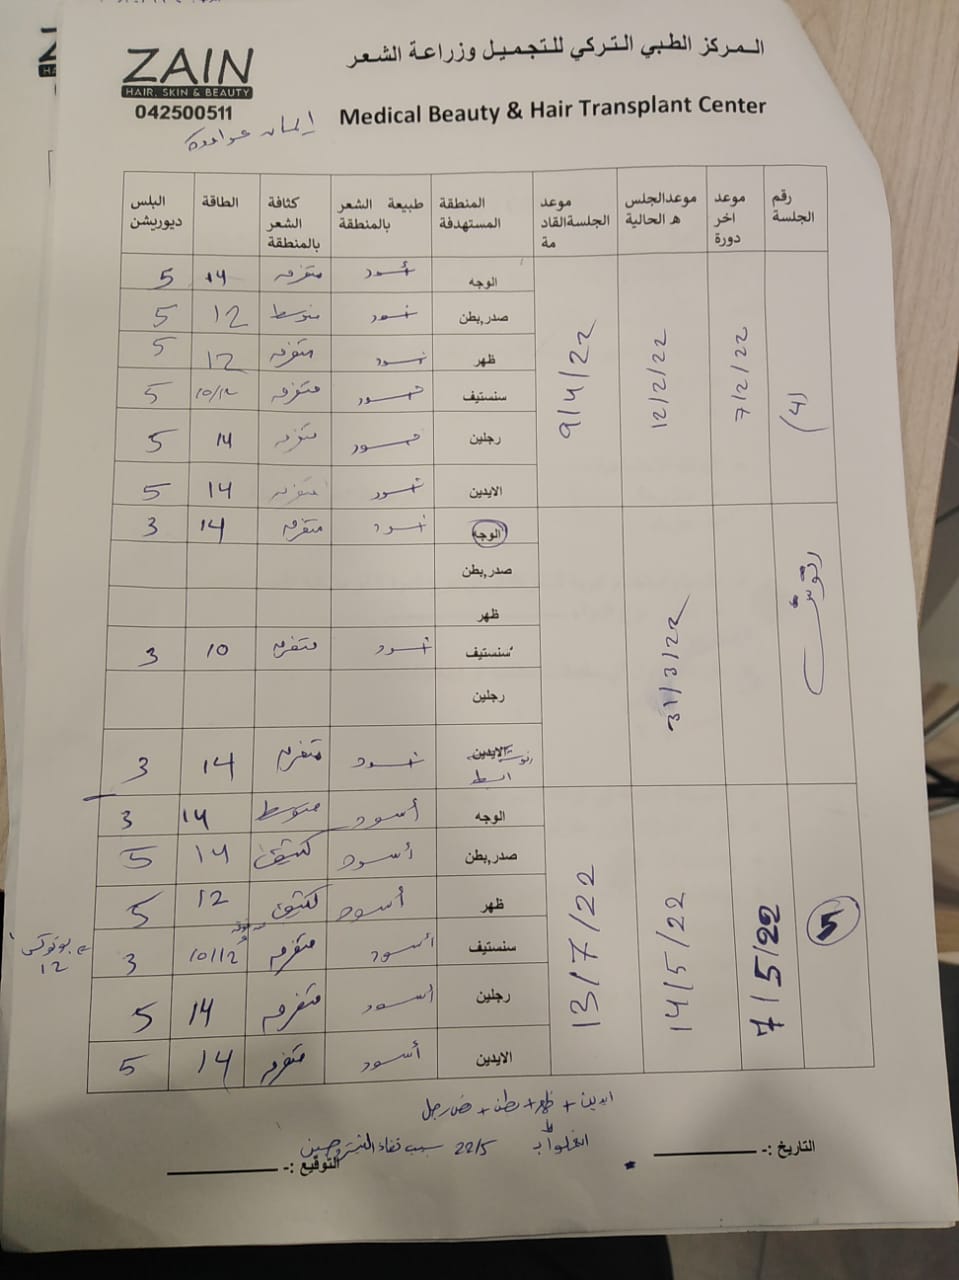 ZAIN
HAIR, SKIN & BEAUTY
042500511
المركز الطبي التركي للتجميل وزراعة الشعر
Medical Beauty & Hair Transplant Center
رقم الجلسة | موعد اخر دورة | موعدالجلس ه الحالية | موعد الجلسةالقاد مة | المنطقة المستهدفة | طبيعة الشعر بالمنطقة | كثافة الشعر بالمنطقة | الطاقة | البلس ديوريشن
(4) | 7/2/22 | 12/2/22 | 9/4/22
الوجه | أسود | متفرق | 14 | 5
صدر,بطن | أسود | متوسط | 12 | 5
ظهر | أسود | متفرق | 12 | 5
سنستيف | أسود | متفرق | 10/12 | 5
رجلين | أسود | متفرق | 14 | 5
الايدين | أسود | متفرق | 14 | 5
رتوش | 31/3/22
الوجه | أسود | متفرق | 14 | 3
صدر,بطن
ظهر
سنستيف | أسود | متفرق | 10 | 3
رجلين
الايدين | أسود | متفرق | 14 | 3
رتوش
5 | 7/5/22 | 14/5/22 | 13/7/22
الوجه | أسود | متوسط | 14 | 3
صدر,بطن | أسود | كثيف | 14 | 5
ظهر | أسود | كثيف | 12 | 5
سنستيف | أسود | متفرق | 10/12 | 3
بوتوكس
12
رجلين | أسود | متفرق | 14 | 5
الايدين | أسود | متفرق | 14 | 5
ايدين + ظهر + بطن +
22/5 سبب نفاذ النيتروجين
التاريخ :-
التوقيع :-